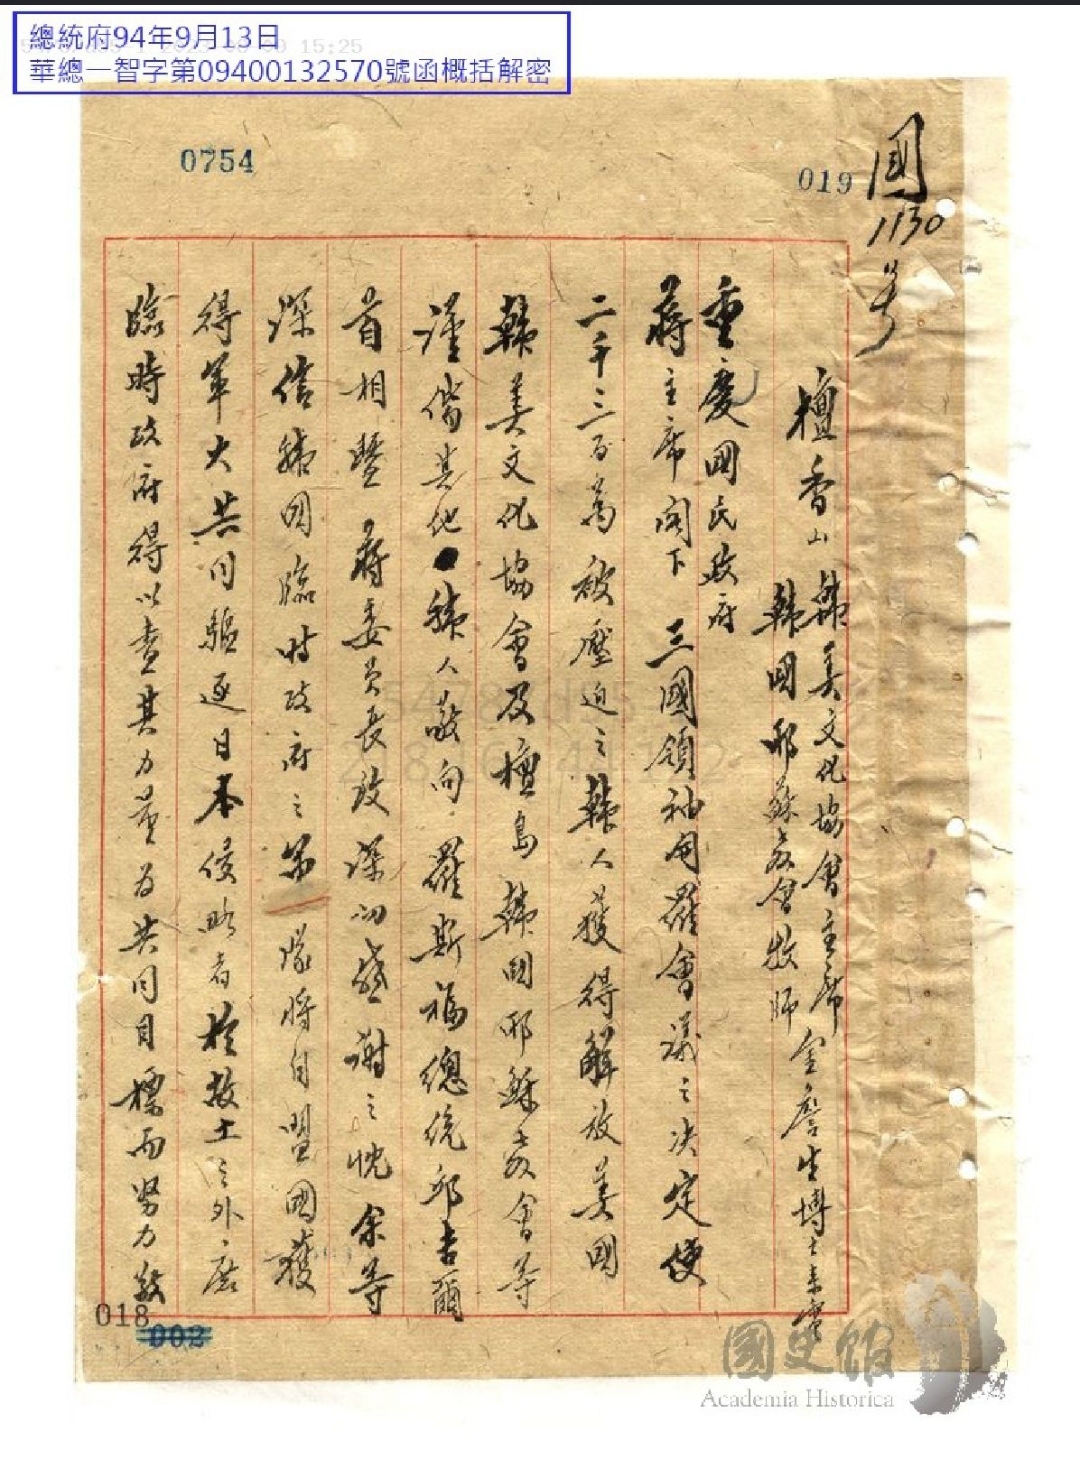 總統府94年9月13日
華總一智字第09400132570號函概括解密
0754
019
國
1130
号
檀香山韓美文化協會主席
韓國耶穌教會牧師
金詹生博士來電
重慶國民政府
蔣主席閣下 三國領袖開羅會議之決定使
二千三百萬被壓迫之韓人獲得解放美國
韓美文化協會及檀島韓國耶穌教會等
謹偕其他韓人敬向羅斯福總統邱吉爾
首相暨 蔣委員長致深切感謝之忱余等
深信韓國臨時政府之軍隊將自盟國獲
得軍火共同驅逐日本侵略者於故土之外庶
臨時政府得以盡其力量為共同目標而努力敬
018
002
國史館
Academia Historica